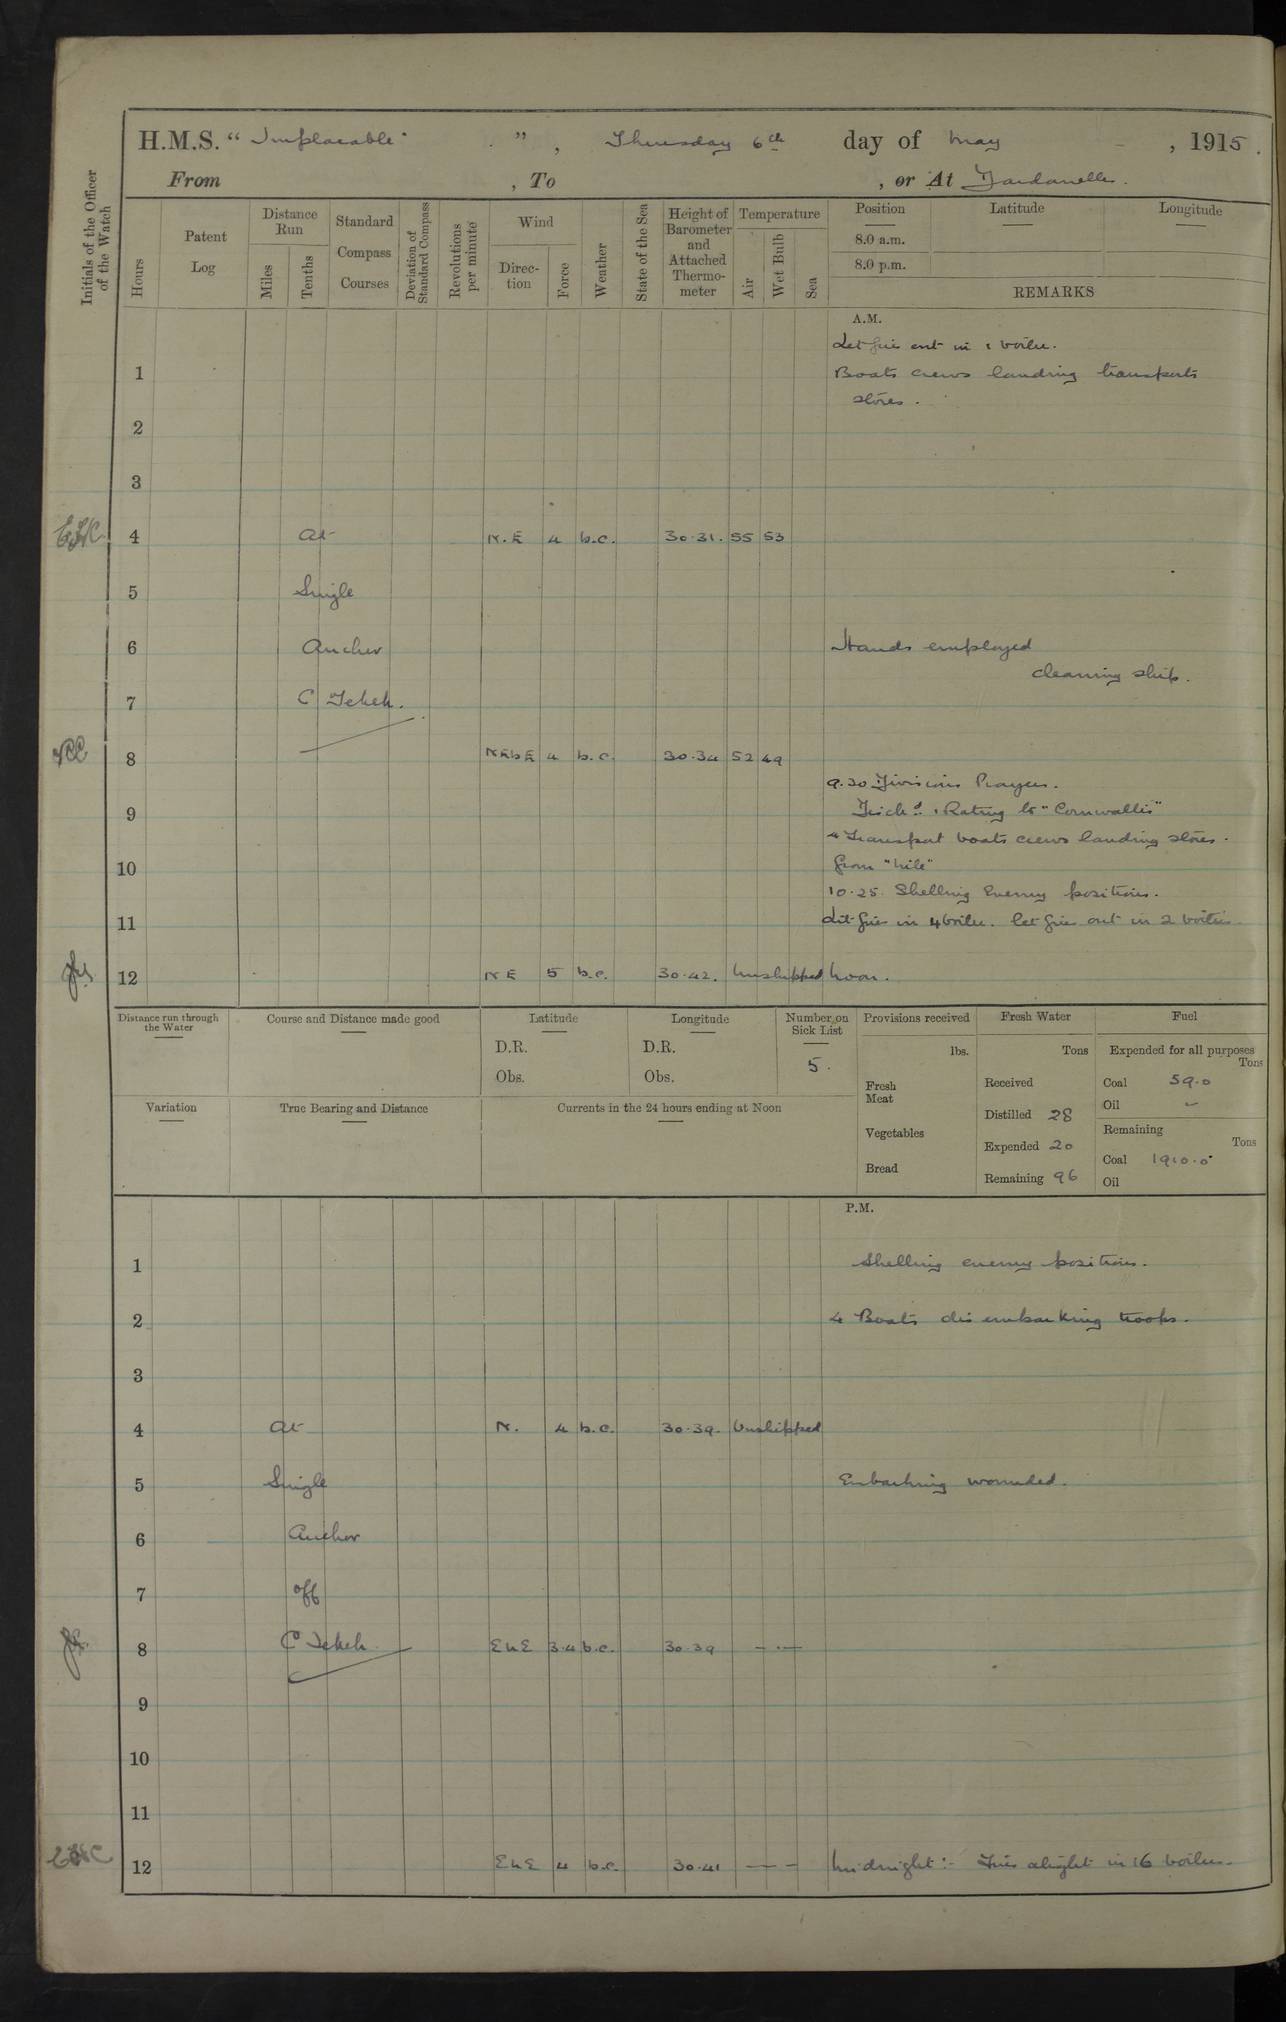 H.M.S. “ Implacable ” , Thursday 6th day of May , 1915.
From , To , or At Dardanelles.
Initials of the Officer of the Watch
Hours
Patent Log
Distance Run
Miles
Tenths
Standard Compass Courses
Deviation of Standard Compass
Revolutions per minute
Wind
Direc-tion
Force
Weather
State of the Sea
Height of Barometer and Attached Thermo-meter
Temperature
Air
Wet Bulb
Sea
Position
8.0 a.m.
8.0 p.m.
Latitude
Longitude
REMARKS
A.M.
Let fires out in 1 boiler.
1 Boats crews landing transports
stores.
2
3
4 At N.E 4 b.c. 30.31. 55 53
5 Single
6 Anchor Hands employed
cleaning ship.
7 C Tekeh.
8 NEbE 4 b.c. 30.34 52 49
9.30 Divisions Prayers.
9 Disch'd 1 Rating to "Cornwallis"
4 Transport boats crews landing stores.
10 from "Nile"
10.25 Shelling Enemy positions.
11 Lit fires in 4 boiler. let fires out in 2 boilers
12 N E 5 b.c. 30.42. Unshipped Noon.
Distance run through the Water
Course and Distance made good
Latitude
D.R.
Obs.
Longitude
D.R.
Obs.
Number on Sick List
5.
Provisions received
lbs.
Fresh Meat
Vegetables
Bread
Fresh Water
Tons
Received
Distilled 28
Expended 20
Remaining 96
Fuel
Expended for all purposes
Tons
Coal 59.0
Oil -
Remaining
Tons
Coal 1910.0
Oil
Variation
True Bearing and Distance
Currents in the 24 hours ending at Noon
P.M.
1 Shelling enemy positions.
2 4 Boats disembarking troops.
3
4 At N. 4 b.c. 30.39. Unshipped
5 Single Embarking wounded.
6 Anchor
7 off
8 C Tekeh. ENE 3.4 b.c. 30.39 — . —
9
10
11
12 ENE 4 b.c. 30.41 — - Midnight :- Fires alight in 16 boilers.